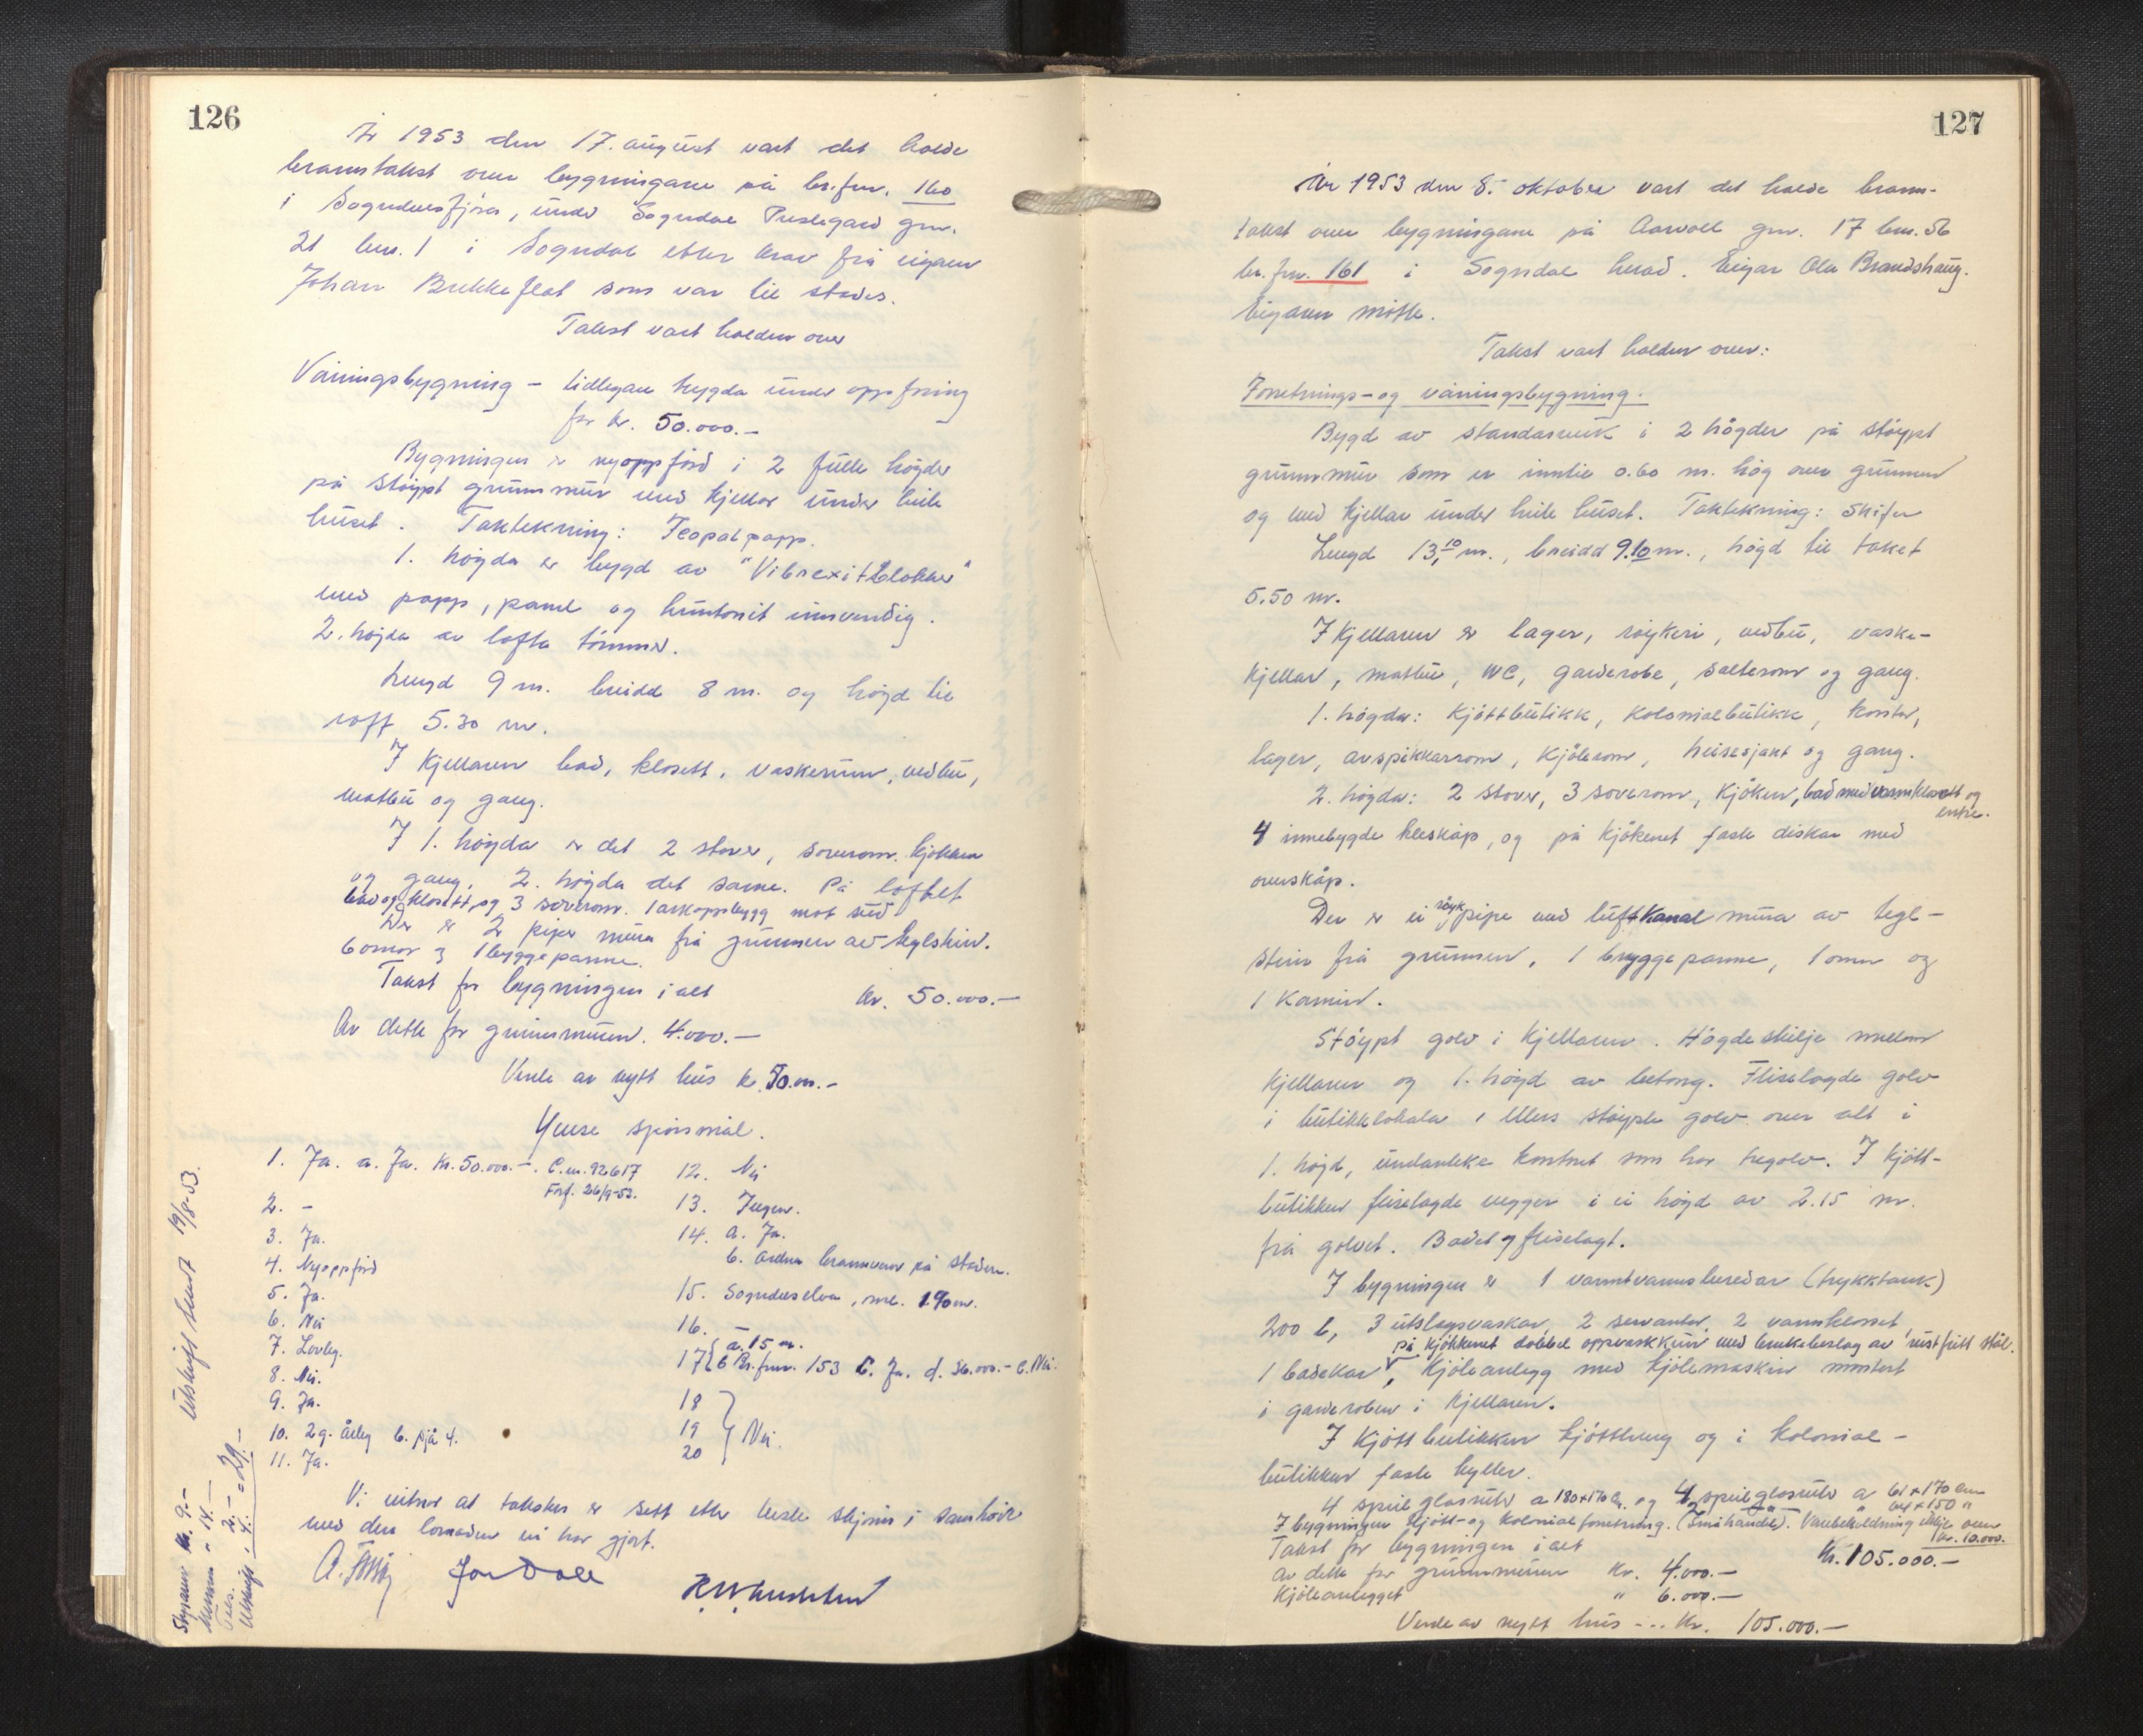 126
År 1953 den 17. august vart det halde
branntakst over bygningane på br.fnr. 160
i Sogndalsfjøra, under Sogndal Prestegard gnr.
21 bnr. 1 i Sogndal etter krav frå eigaren
Johan Brekkeflat som var til stades.
Takst vart halden over
Våningsbygning – tidlegare trygda under oppföring
for kr. 50.000.–
Bygningen er nyoppförd i 2 fulle högder
på støypt grunnmur med kjellar under heile
huset. Taktekning: Icopalpapp.
1. högda er bygd av "Vibrexitblokker"
med papp, panel og huntonit innvendig.
2. högda av lafta tömmer.
Lengd 9 m. breidd 8 m. og högd til
röff 5.30 m.
I kjellaren bad, klosett, vaskerum, vedbu,
matbu og gang.
I 1. högda er det 2 stover, soverom, kjökken
og gang. 2. högda det same. På loftet
bad og klosett, og 3 soverom. 1 arkoppbygg mot sud
Der er 2 piper mura frå grunnen av teglstein.
6 omnar og 1 bryggepanne.
Takst for bygningen i alt kr. 50.000.–
Av dette for grunnmuren. 4.000.–
Verde av nytt hus kr. 50.000.–
Ymse spörsmål.
1. Ja. a. Ja. Kr. 50.000.–. C.nr. 92617
Forf. 26/9-53.
2. –
3. Ja.
4. Nyoppförd
5. Ja.
6. Nei
7. Lovleg.
8. Nei.
9. Ja.
10. 2 g. årleg b. sjå 4.
11. Ja.
12. Nei
13. Ingen.
14. a. Ja.
b. Ordna brannvern på staden.
15. Sogndalselva, ml. 190 m.
16. –
17 { a. 15 m.
b Br.fnr. 153 c. Ja. d. 36.000.– e. Nei.
18
19 } Nei.
20
Vi vitnar at taksten er sett etter beste skjönn i samhöve
med den lovnaden vi har gjort.
Jon Dale
Utskrift sendt 19/8-53.
Styraren kr. 9.–
" 14.–
2.–
Utskrift " 4.– = 29.–
127
År 1953 den 8. oktober vart det halde brann-
takst over bygningane på Aarvoll gnr. 17 bnr. 56
br.fnr. 161 i Sogndal herad. Eigar Ola Brandshaug.
Eigaren mötte.
Takst vart halden over:
Forretnings- og våningsbygning.
Bygd av standarverk i 2 högder på støypt
grunnmur som er inntil 0.60 m. hög over grunnen
og med kjellar under heile huset. Taktekning: Skifer
Lengd 13,10 m., breidd 9.10 m., högd til taket
5.50 m.
I kjellaren er lager, röykeri, vedbu, vaske-
kjellar, matbu, WC, garderobe, salterom og gang.
1. högda: Kjöttbutikk, kolonialbutikk, kontor,
lager, avspikkarrom, kjölerom, heisesjakt og gang.
2. högda: 2 stover, 3 soverom, kjöken, bad med vannklosett og
entre.
4 innebygde kleskåp, og på kjökenet faste diskar med
overskåp.
Der er ei röykpipe med luftkanal mura av tegl-
stein frå grunnen, 1 bryggepanne, 1 omn og
1 kamin.
Støypt golv i kjellaren. Högdeskilje mellom
kjellaren og 1. högd av betong. Fliselagde golv
i butikklokala, ellers støypte golv over alt i
1. högd, undanteke kontoret som har tregolv. I kjött-
butikken fliselagde vegger i ei högd av 2.15 m.
frå golvet. Badet og fliselagt.
I bygningen er 1 varmtvannsberedar (trykktank)
200 l, 3 utslagsvaskar, 2 servantar, 2 vannklosset,
på kjökkenet dobbel oppvaskkum med benkebeslag av rustfritt stål.
1 badekar, Kjöleanlegg med kjölemaskin montert
i garderoben i kjellaren.
I kjöttbutikken kjöttheng og i kolonial-
butikken faste hyller.
4 speilglasruter a 180×170 cm. og 4 speilglasruter a 61×170 cm
2 " 64×150 "
I bygningen kjött- og kolonialforretning. (Småhandel). Varebeholdning ikkje over
kr. 10.000.
Takst for bygningen i alt Kr. 105.000.–
Av dette for grunnmuren Kr. 4.000.–
Kjöleanlegget " 6.000.–
Verde av nytt hus ... Kr. 105.000.–